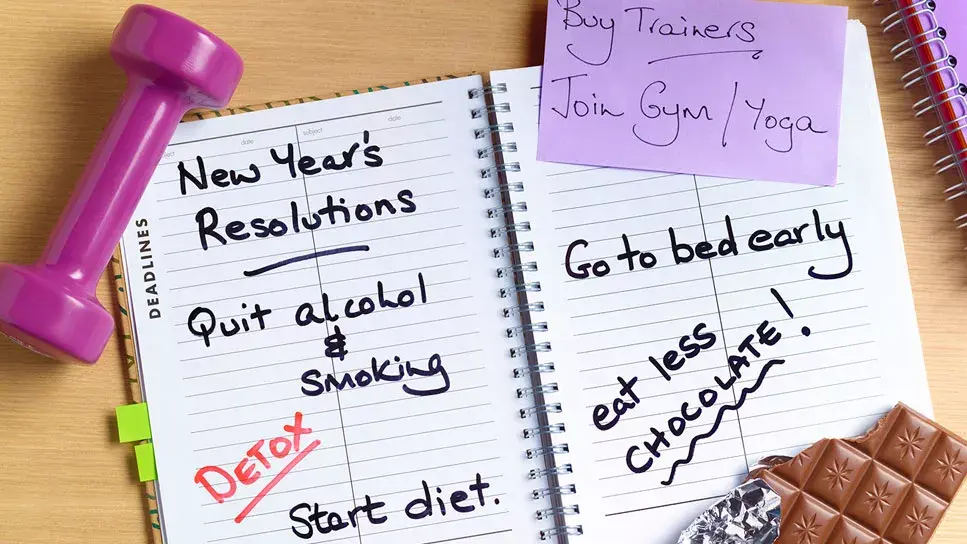 Buy Trainers
Join Gym / Yoga
date
subject
date
DEADLINES
New Year's
Resolutions
Quit alcohol
&
smoking
DETOX
Start diet.
Go to bed early
eat less
CHOCOLATE!